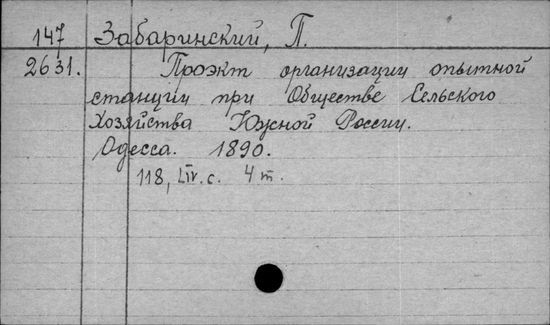 147 Забаринский, П.
2631. Проэкт организации опытной
станции при Обществе Сельского
Хозяйства Южной России.
Одесса. 1890.
118, LIV. с. 4 т.